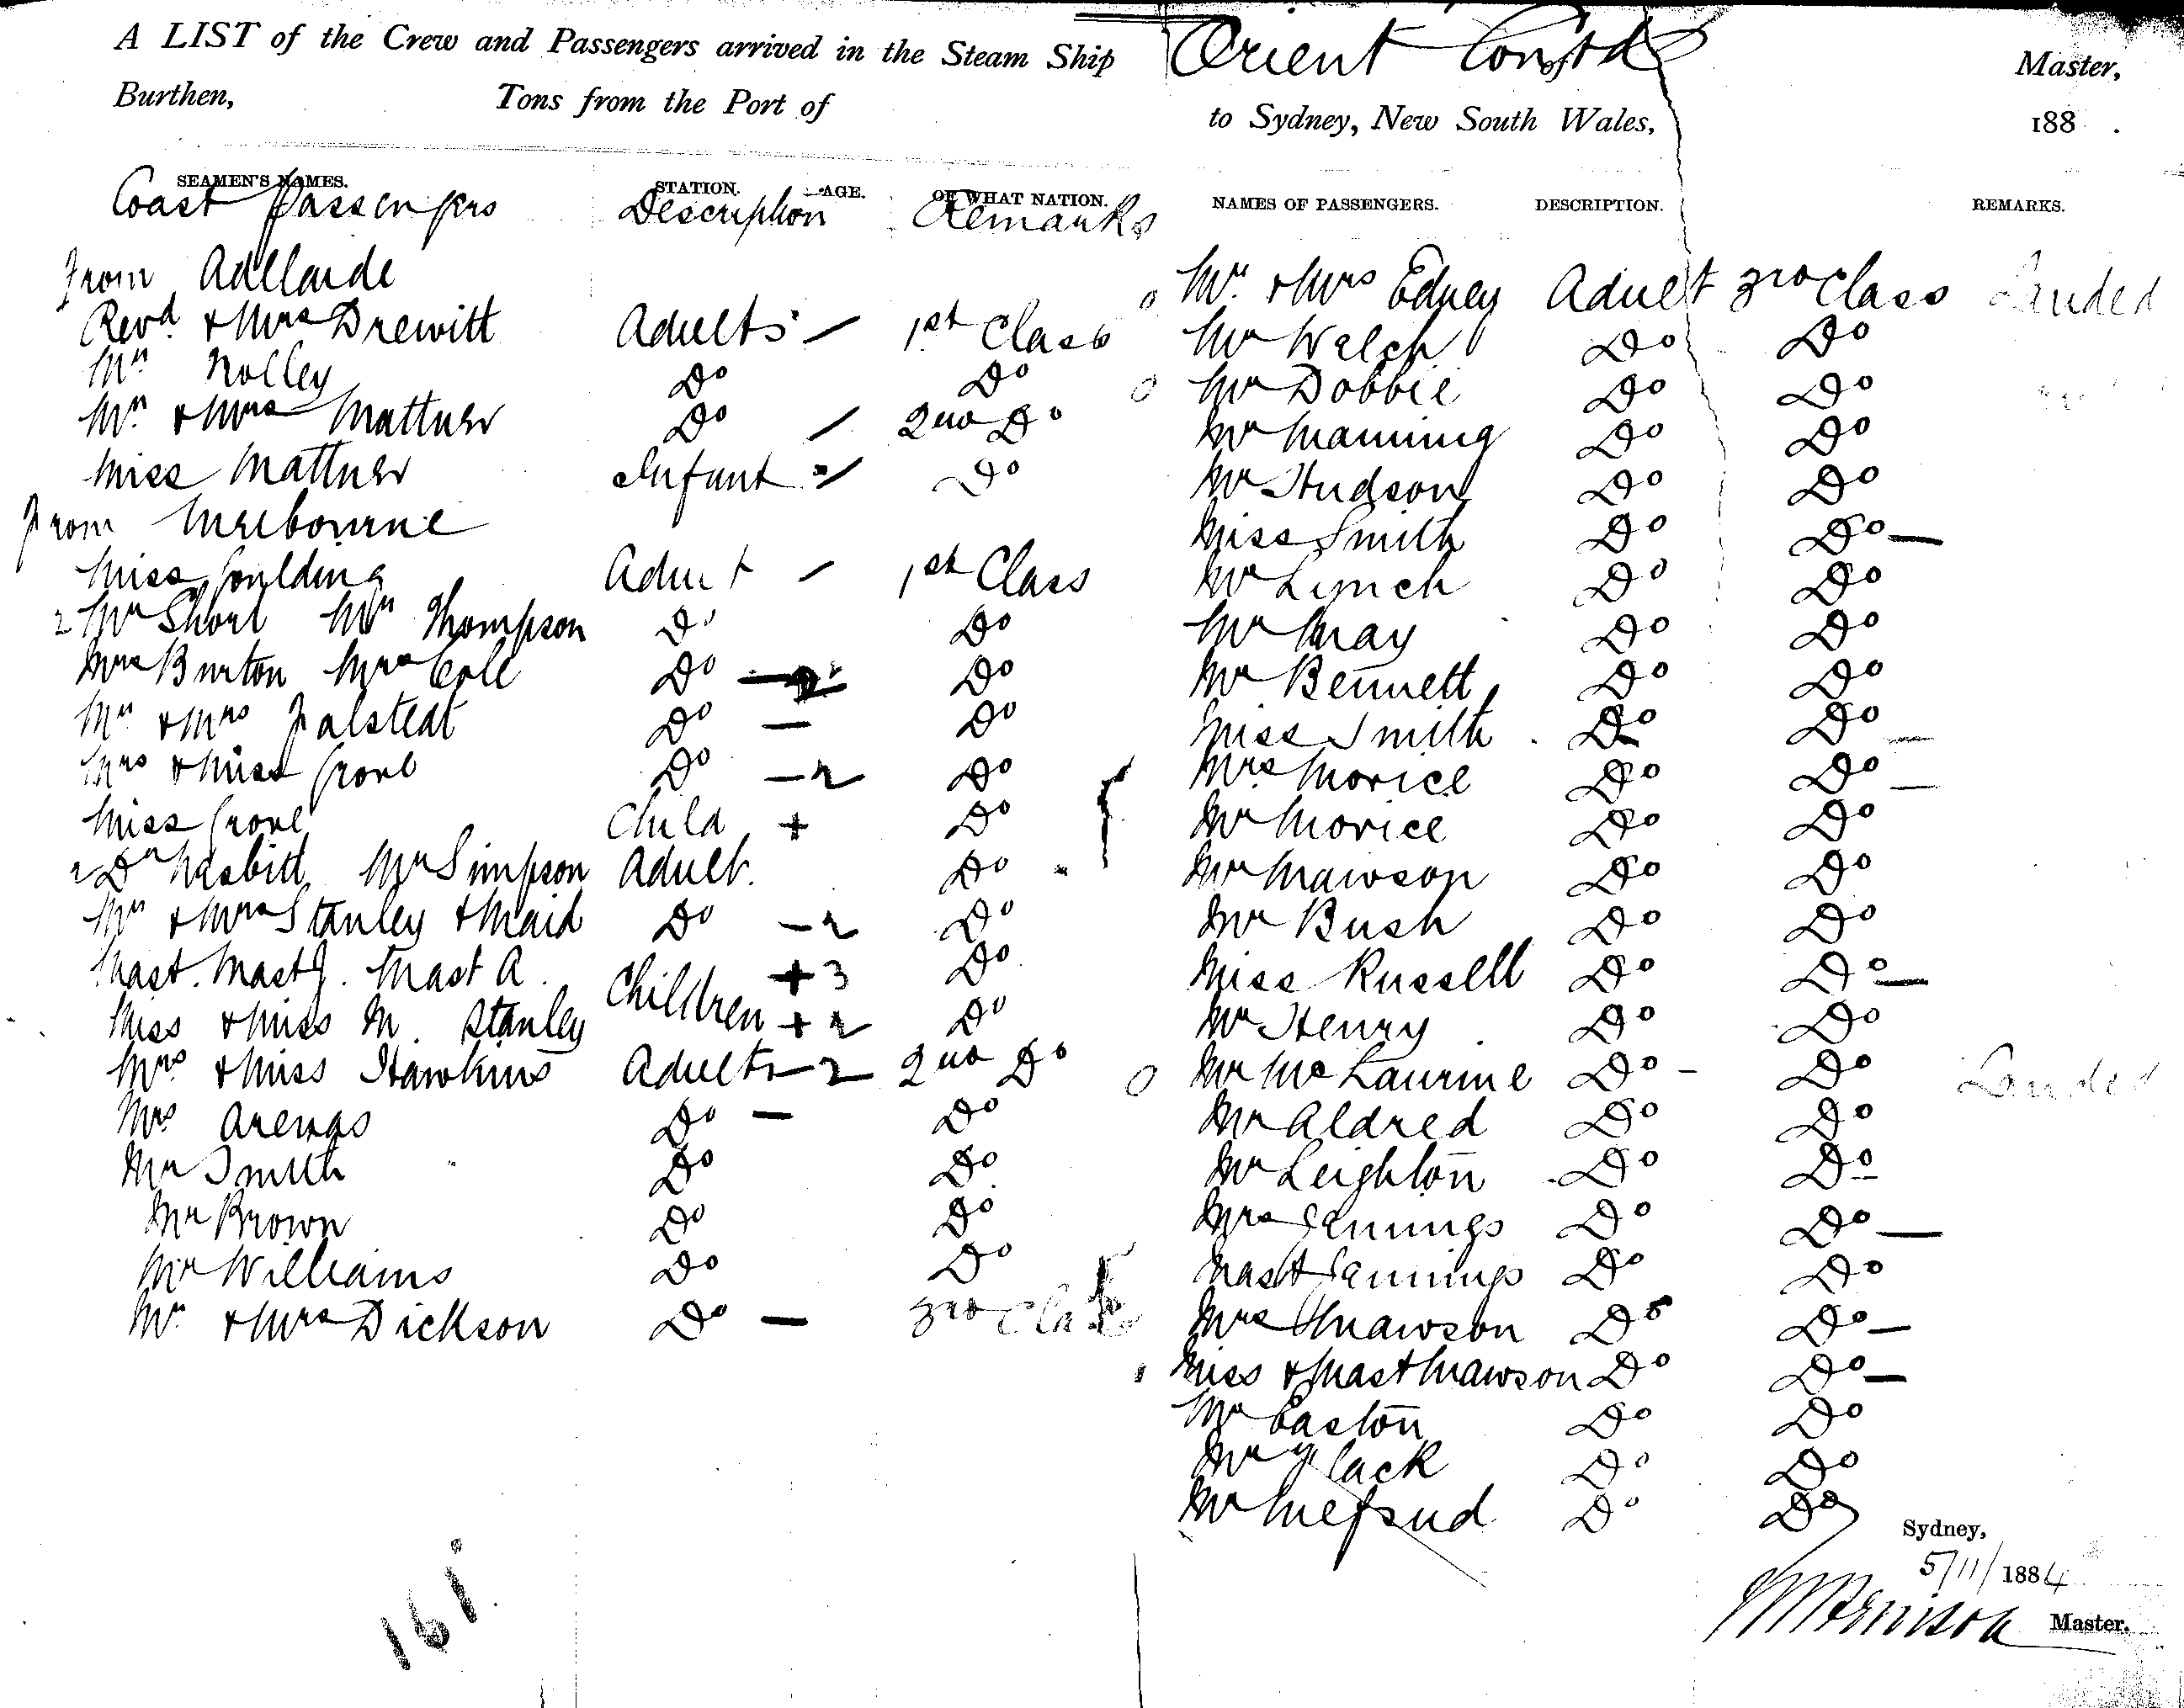 A LIST of the Crew and Passengers arrived in the Steam Ship Orient Contd of Master,
Burthen, Tons from the Port of to Sydney, New South Wales, 188 .
SEAMEN'S NAMES. STATION. AGE. OF WHAT NATION.
Coast Passengers Description Remarks
From Adelaide
Revd. & Mrs Drewitt Adults - 1st Class
Mr Nolley Do Do
Mr. & Mrs Mattner Do - 2nd Do
Miss Mattner Infant - Do
From Melbourne
Miss Goulding Adult - 1st Class
2 Mr Short Mr Thompson Do Do
Mrs Burton Mrs Cole Do - 2 Do
Mr & Mrs Falstedt Do - Do
Mrs & Miss Grove Do - 2 Do
Miss Grove Child + Do
2 Dr Nesbitt Mr Simpson Adult. Do
Mr & Mrs Stanley & Maid Do - 2 Do
Mast. Mast J. Mast A. Children + 3 Do
Miss & Miss M. Stanley + 2 Do
Mrs & Miss Hawkins Adults - 2 2nd Do
Mrs Arenas Do - Do
Mr Smith Do Do
Mr Brown Do Do
Mr Williams Do Do
Mr. & Mrs Dickson Do - 3rd Class
161
NAMES OF PASSENGERS. DESCRIPTION. REMARKS.
o Mr. & Mrs Edney Adult 3rd Class Landed
Mr Welch Do Do
o Mr Dobbie Do Do
Mr Manning Do Do
Mr Hudson Do Do
Miss Smith Do Do -
Mr Lynch Do Do
Mr May Do Do
Mr Bennett Do Do
Miss Smith Do Do -
Mrs Morice Do Do -
Mr Morice Do Do
Mr Mawson Do Do
Mr Bush Do Do
Miss Russell Do Do -
Mr Henry Do Do
o Mr McLaurine Do - Do Landed
Mr Aldred Do Do
Mr Leighton Do Do
Mrs Jennings Do Do -
Mast Jennings Do Do
Mrs Mawson Do Do -
Miss & Mast Mawson Do Do -
Mr Easton Do Do
Mr Do Do
Mr Do Do
Sydney,
5/11/1884
Master.